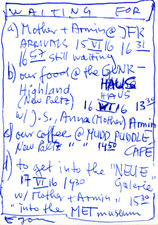 WAITING FOR
a) Mother + Armin @ JFK
ARRIVALS 15 VI 16 16 31
16 57 still waiting
b) our food @ the GUNK-
Highland HAUS
(New Paltz) HAUS
16 VI 16 13 30
w/ J.-S., Anna (Mother) Armin
c) our coffee @ MUDD PUDDLE
New Paltz " " 14 50 CAFE
d) to get into the "NEUE
17 VI 16 14 30 Galerie"
w/ Mother + Armin " 15 30
"into the MET museum